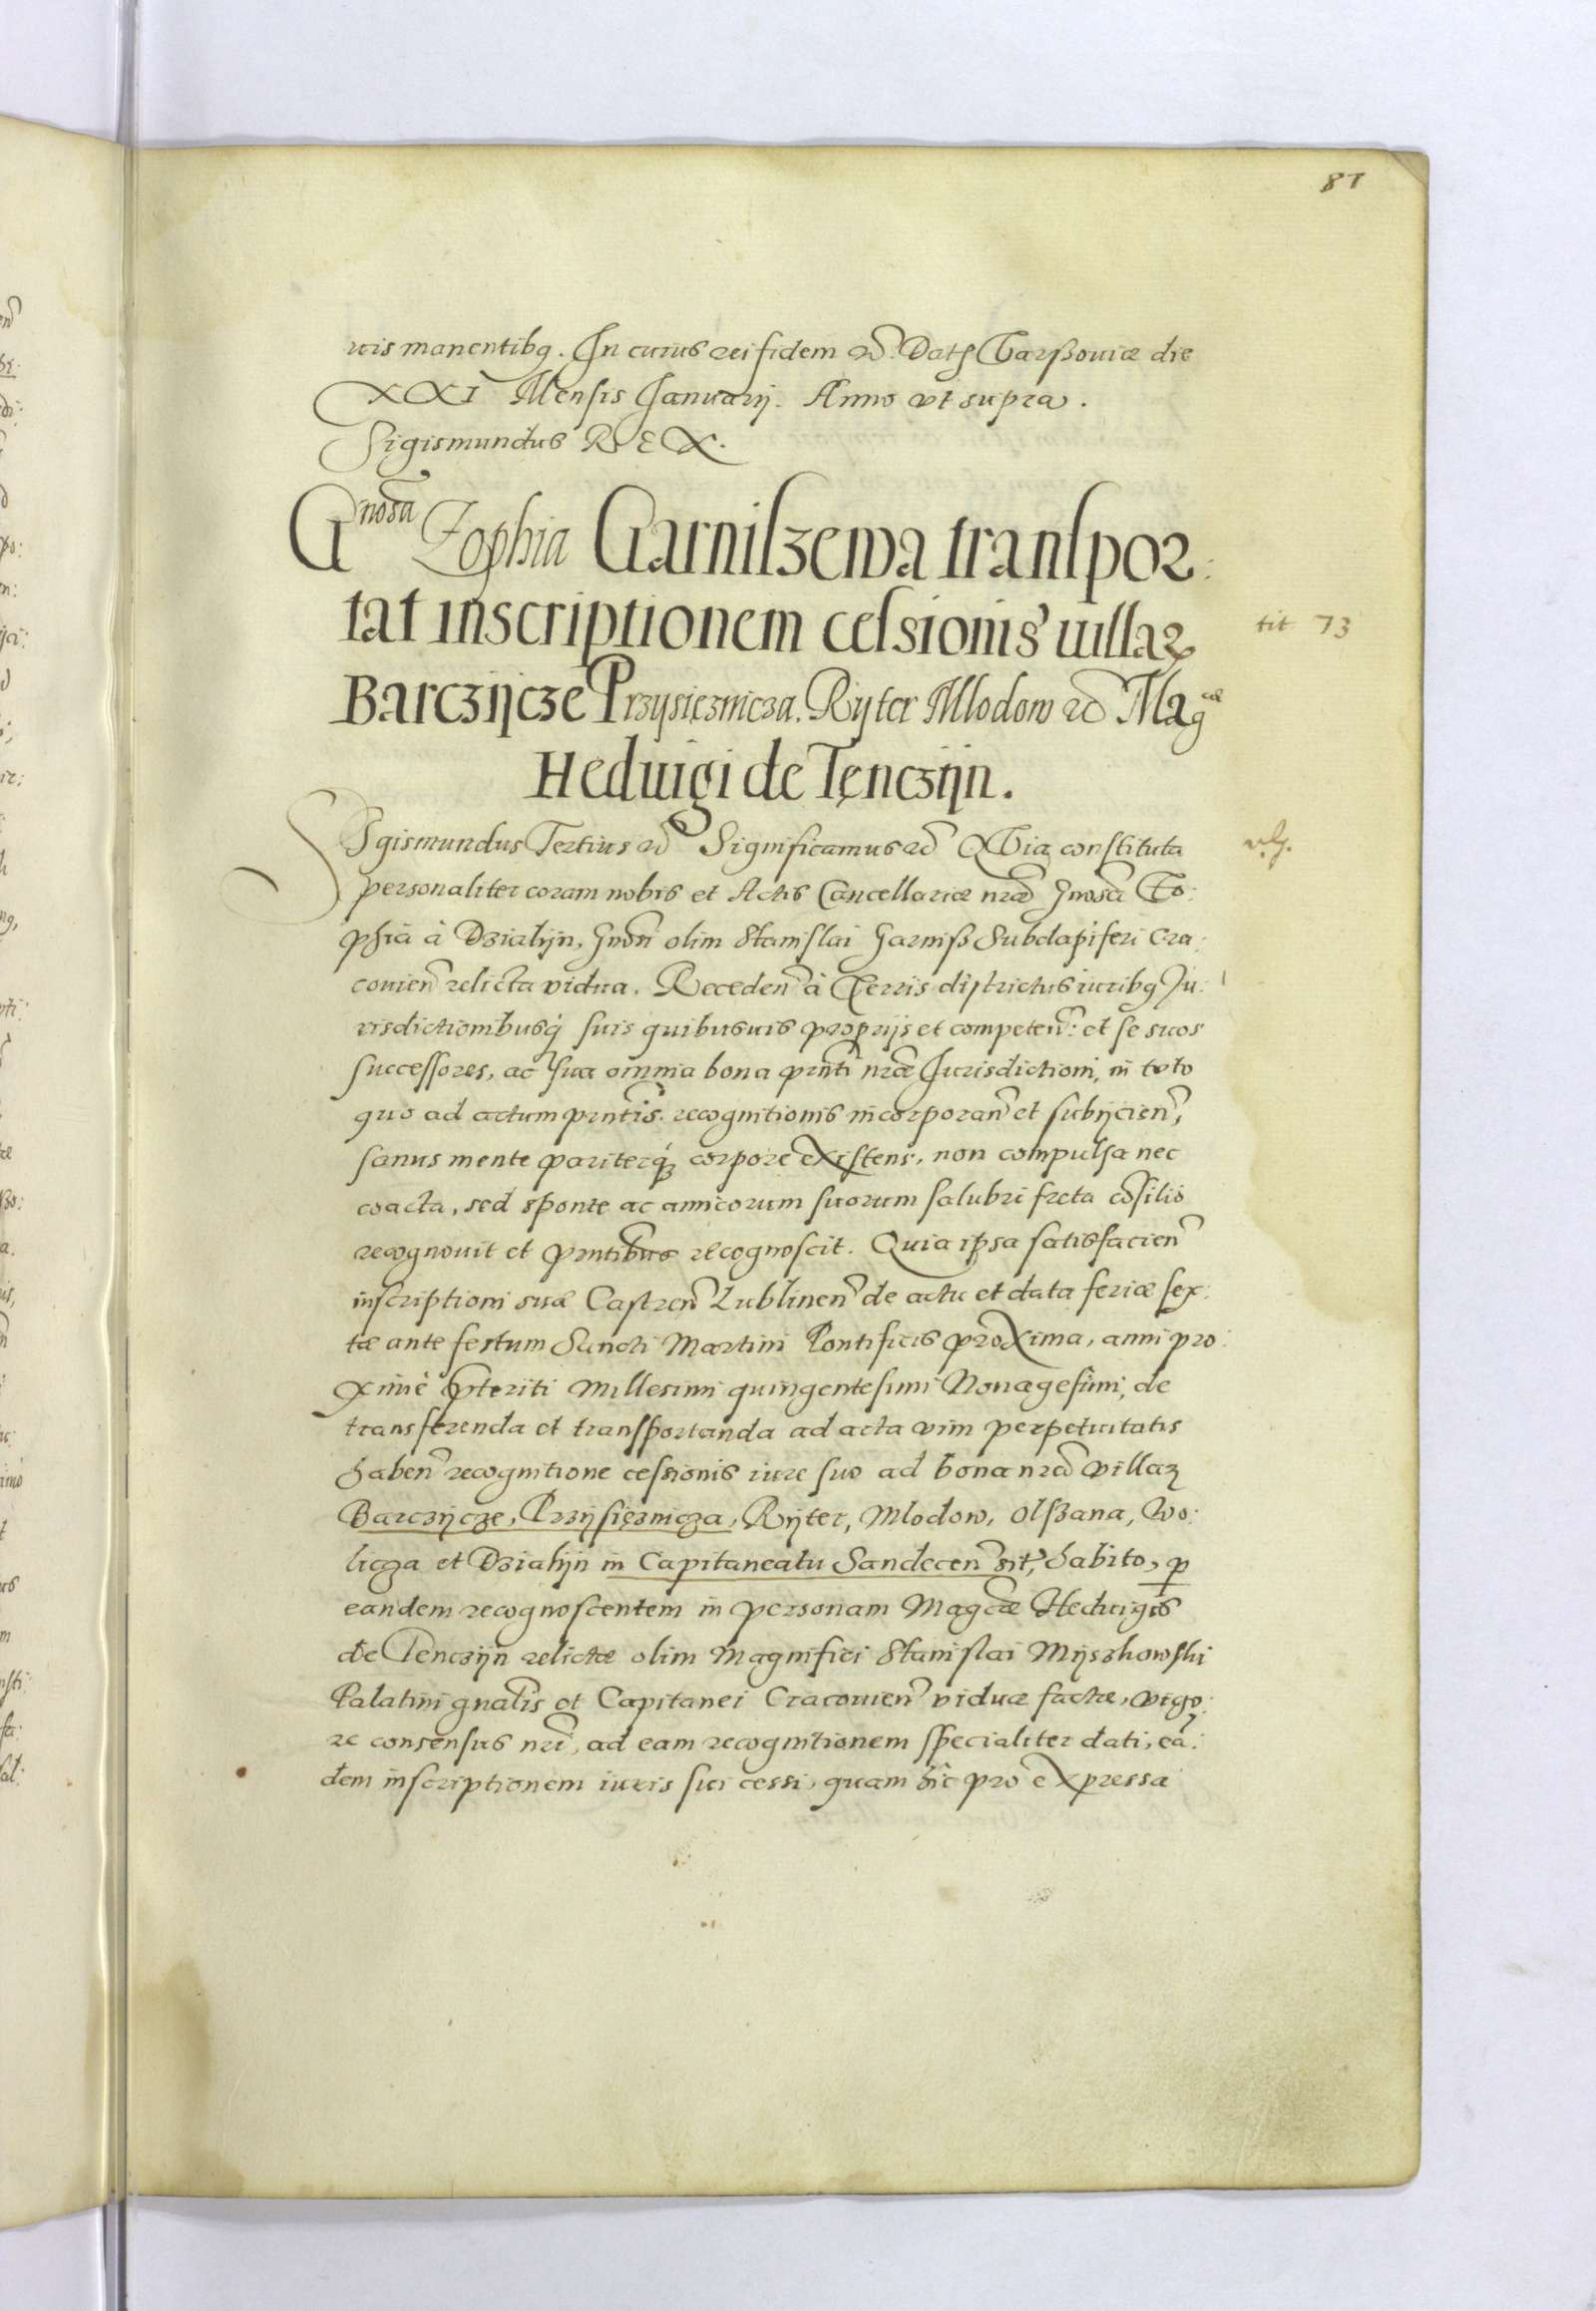 81
uis manentibq. In cuius rei fidem etc. Datq Varßouiæ die
XXI Mensis Januarij. Anno vt supra.
Sigismundus REX.
Gnosa Zophia Garniszewa transpor:
tat inscriptionem cessionis villaꝝ
tit 73
Barczijcze Przysięznicza. Ryter Mlodow etc Magcæ
Hedwigi de Tęnczijn.
Sigismundus Tertius etc Significamus etc Quia constituta
personaliter coram nobis et Actis Cancellariæ nræ Gnosa Zo:
phia à Dzialijn, Gnosi olim Stanislai Garniß Subdapiferi Cra:
couien relicta vidua. Receden à Terris districtus iuribq Ju:
risdictionibusq suis quibusuis proprijs et competen: et se suos
successores, ac sua omnia bona prnti nræ Jurisdictioni, in toto
quo ad actum prntis recognitionis incorporan et subijcien,
sanus mente pariterq corpore existens, non compulsa nec
coacta, sed sponte ac amicorum suorum salubri freta cosilio
recognouit et prntibus recognoscit. Quia ipsa satisfacien
inscriptioni suæ Castren Lublinen de actu et data feriæ sex:
tæ ante festum Sancti Martini Pontificis proxima, anni pro:
ximè pteriti Millesimi quingentesimi Nonagesimi, de
transferenda et transportanda ad acta vim perpetuitatis
haben recognitione cessionis iure suo ad bona nra villaꝝ
Barczijcze, Przijsięznicza, Ryter, Mlodow, Olßana, Wo:
licza et Dzialijn in Capitaneatu Sandecen sit, habito, p
eandem recognoscentem in personam Magcæ Hedwigis
de Tenczijn relictæ olim Magnifici Stanislai Mijszkowski
Palatini gnalis et Capitanei Cracouien viduæ factæ, vigo:
re consensus nri, ad eam recognitionem specialiter dati, ea:
dem inscriptionem iuris sui cessi, quam hic pro expressa